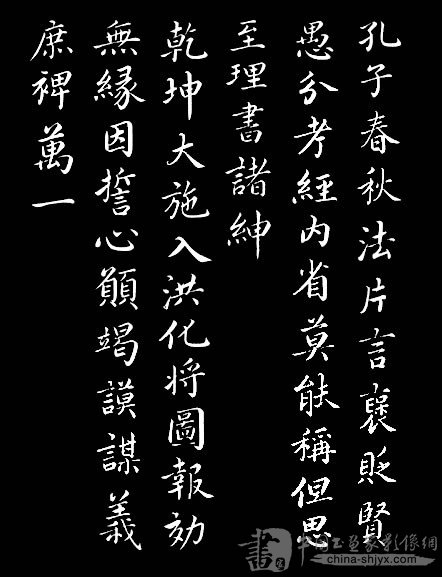 孔子春秋法片言襃貶賢
愚分考經内省莫能稱但思
至理書諸紳
乾坤大施入洪化將圖報効
無緣因誓心願竭謨謀義
庶裨萬一
書
china-shjyx.com